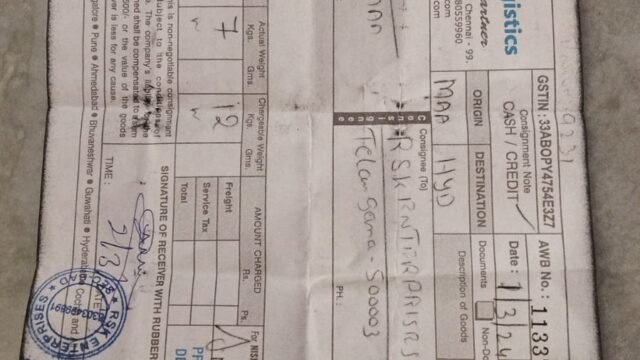 gistics
artner
Chennai - 99.
80559960
com
9231
GSTIN : 33ABOPY4754E3Z7
Consignment Note
CASH / CREDIT ✓
AWB No. : 1133
Date : 1/3/24
ORIGIN
DESTINATION
Documents
Non-Do
MAA
HYD
Description of Goods
MAA
Consignee
Consignee (To)
RSK ENTERPRISES
Telangana - 500003
PH. :
Actual Weight
Chargeable Weight
AMOUNT CHARGED
Kgs.
Gms.
Kgs.
Gms.
Rs.
Ps.
7
12
Freight
Service Tax
Total
his is non-negotiable consignment
subject to the conditions of
The company's
ned shall be compensated to them
500/- or the value of the goods
ver is less for any cause.
SIGNATURE OF RECEIVER WITH RUBBER
TIME :
2/3
RSK ENTERPRISES
galore ● Pune ● Ahmedabad ● Bhuvaneshwar ● Guwahati ● Hyderabad